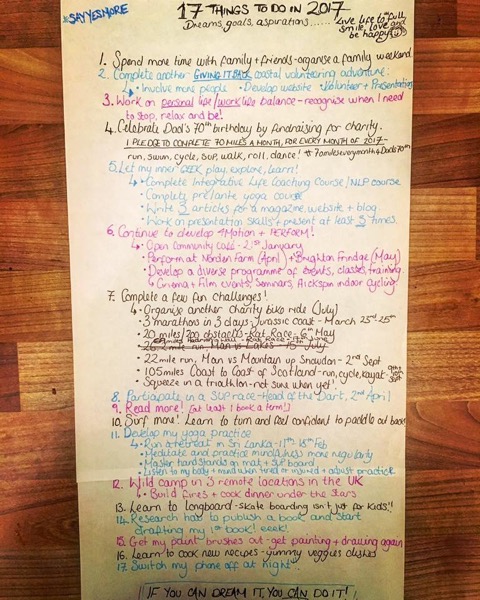 #SAYYESMORE
17 THINGS TO DO IN 2017
Dreams, goals, aspirations......
Live life to full,
smile, love and
be happy
1. Spend more time with family + friends - organise a family weekend
2. Complete another GIVING IT BACK coastal volunteering adventure:
Involve more people • Develop website • Volunteer + Presentations
3. Work on personal life/work life balance - recognise when I need
to stop, relax and be!
4. Celebrate Dad's 70th birthday by fundraising for charity.
I PLEDGE TO COMPLETE 70 MILES A MONTH, FOR EVERY MONTH OF 2017 -
run, swim, cycle, SUP, walk, roll, dance! # 70mileseverymonth4Dads70th
5. Let my inner GEEK play, explore, learn!
Complete Integrative Life Coaching Course/NLP course
Complete pre/ante yoga course
Write 3 articles for a magazine, website + blog
Work on presentation skills + present at least 3 times.
6. Continue to develop 4Motion + PERFORM!
Open Community café - 21st January
Perform at Norden Farm (April) + Brighton Fringe (May)
Develop a diverse programme of events, classes, training
Cinema + Film events, Seminars, indoor cycling
7. Complete a few fun challenges!
Organise another charity bike ride (July)
3 marathons in 3 days - Jurassic coast - March 23rd-25th
20 miles/200 obstacles - Rat Race - 6th May
Man vs Lakes - 15th July
22 mile run, Man vs Mountain up Snowdon - 2nd Sept
105 miles Coast to Coast of Scotland - run, cycle, kayak - 9th
Sept
Squeeze in a triathlon - not sure when yet!
8. Participate in a SUP race - Head of the Dart, 2nd April
9. Read more! [at least 1 book a term!]
10. Surf more! Learn to turn and feel confident to paddle out back
11. Develop my yoga practice
Run a retreat in Sri Lanka - 11th-18th Feb
Meditate and practice mindfulness more regularly
Master handstands on mat + SUP board
Listen to my body + mind when tired or injured + adjust practice
12. Wild camp in 3 remote locations in the UK
Build fires + cook dinner under the stars
13. Learn to longboard - skate boarding isn't just for kids!!
14. Research how to publish a book and start
drafting my 1st book! eeek!
15. Get my paint brushes out - get painting + drawing again
16. Learn to cook new recipes - yummy veggies dishes
17. Switch my phone off at night
IF YOU CAN DREAM IT, YOU CAN DO IT!